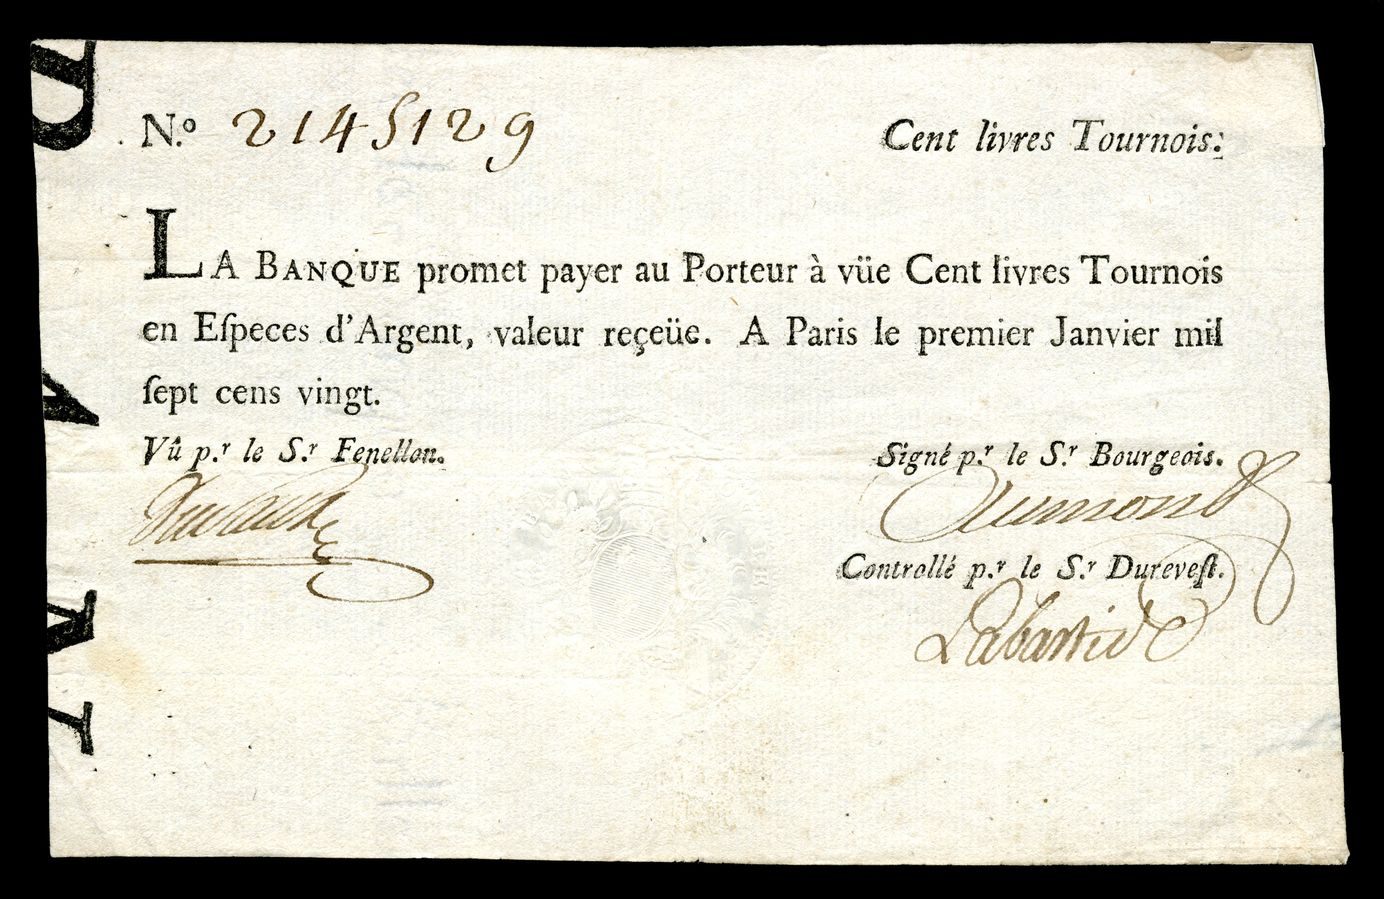 N.º 2145129 Cent livres Tournois:
LA BANQUE promet payer au Porteur à vüe Cent livres Tournois
en Eſpeces d'Argent, valeur reçeüe. A Paris le premier Janvier mil
ſept cens vingt.
Vû p.r le S.r Fenellon. Signé p.r le S.r Bourgeois.
Aumont
Controllé p.r le S.r Dureveſt.
Labastide